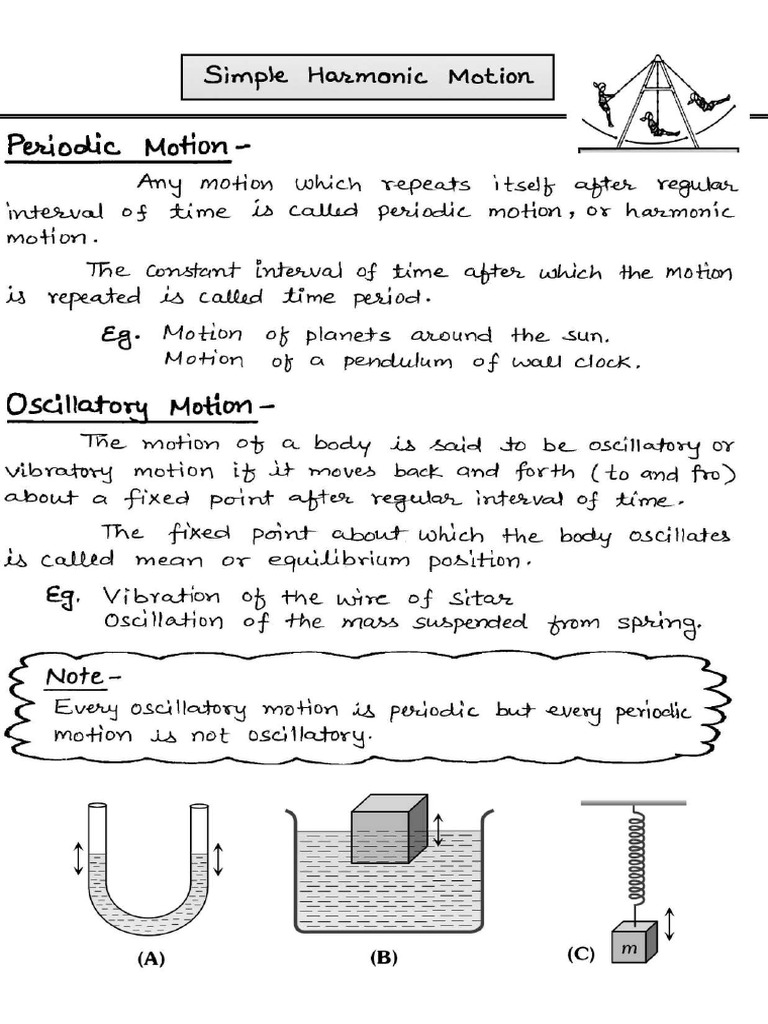 Simple Harmonic Motion
Periodic Motion -
Any motion which repeats itself after regular
interval of time is called periodic motion, or harmonic
motion.
The constant interval of time after which the motion
is repeated is called time period.
Eg. Motion of planets around the sun.
Motion of a pendulum of wall clock.
Oscillatory Motion -
The motion of a body is said to be oscillatory or
vibratory motion if it moves back and forth (to and fro)
about a fixed point after regular interval of time.
The fixed point about which the body oscillates
is called mean or equilibrium position.
Eg. Vibration of the wire of Sitar
Oscillation of the mass suspended from spring.
Note -
Every oscillatory motion is periodic but every periodic
motion is not oscillatory.
m
(A) (B) (C)